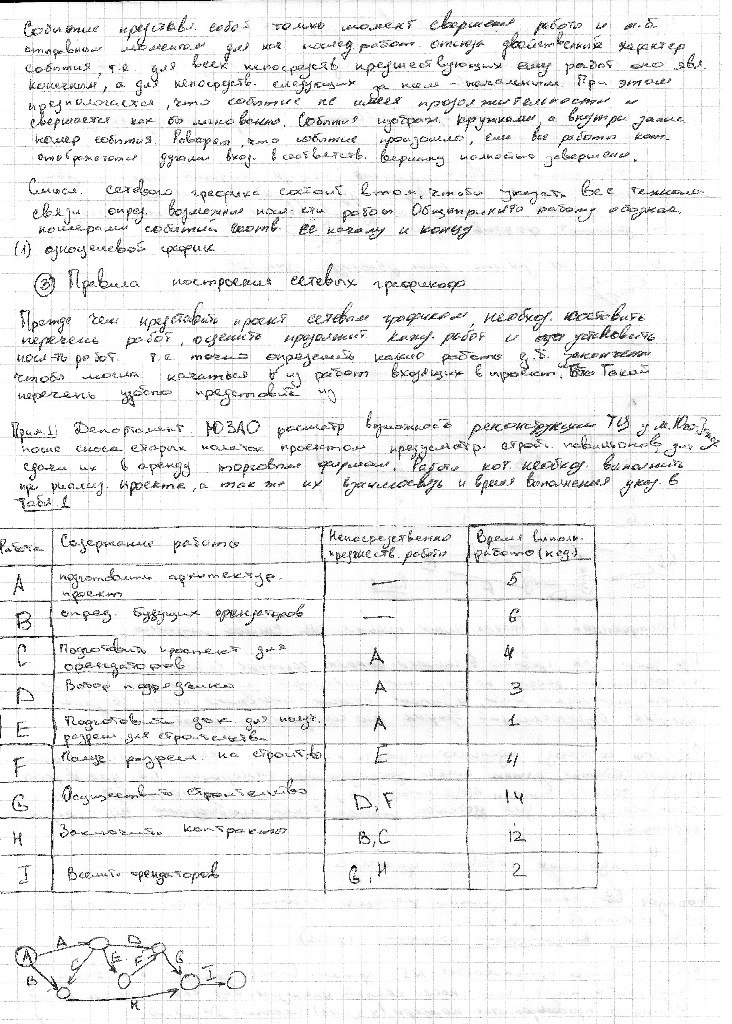 Событие представл. собой только момент свершения работы и м.б.
отправным моментом для нач послед работ. отсюда двойственный характер
события, т.е. для всех непосредств предшествующих ему работ оно явл.
конечным, а для непосредств. следующих за ним - начальным. При этом
предполагается, что событие не имеет продолжительности и
свершается как бы мгновенно. События изображ. кружками, а внутри запис.
номер события. Говорят, что событие произошло, если все работы кот.
отображаются дугами вход. в соответств. вершину полностью завершены.
Смысл. сетевого графика состоит в том, чтобы указать все технолог
связи опред. возможную посл-ть работ. Общепринято работу обознач.
номерами событий соотв. её началу и концу
(1) одноцелевой график
③ Правила построения сетевых графиков
Прежде чем представить проект сетевым графиком необход. составить
перечень работ, оценить продолжит кажд. работ и установить
посл-ть работ. т.е. точно определить какие работы д.б. закончены
чтобы могла начаться ∀ из работ входящих в проект. Такой
перечень удобно представить из
Прим.1: Департамент ЮЗАО рассматр возможность реконструкции ТЦ у м. Юго-Зап
после сноса старых палаток проектом предусмотр. строит. павильонов, для
сдачи их в аренду торговым фирмам. Работы кот. необход. выполнить
при реализ. проекта, а так же их взаимосвязь и время выполнения указ. в
Табл 1
Работа Содержание работы Непосредственно предшеств. работы Время выполн. работы (нед)
A подготовить архитектур. проект — 5
B опред. будущих арендаторов — 6
C Подготовить проспект для арендаторов A 4
D Выбор подрядчика A 3
E Подготовить док для получ. разреш для строительства A 1
F Получ разреш. на строит-во E 4
G Осуществить строительство D, F 14
H Заключить контракты B, C 12
I Вселить арендаторов G, H 2
A A D
B C E F G I
H